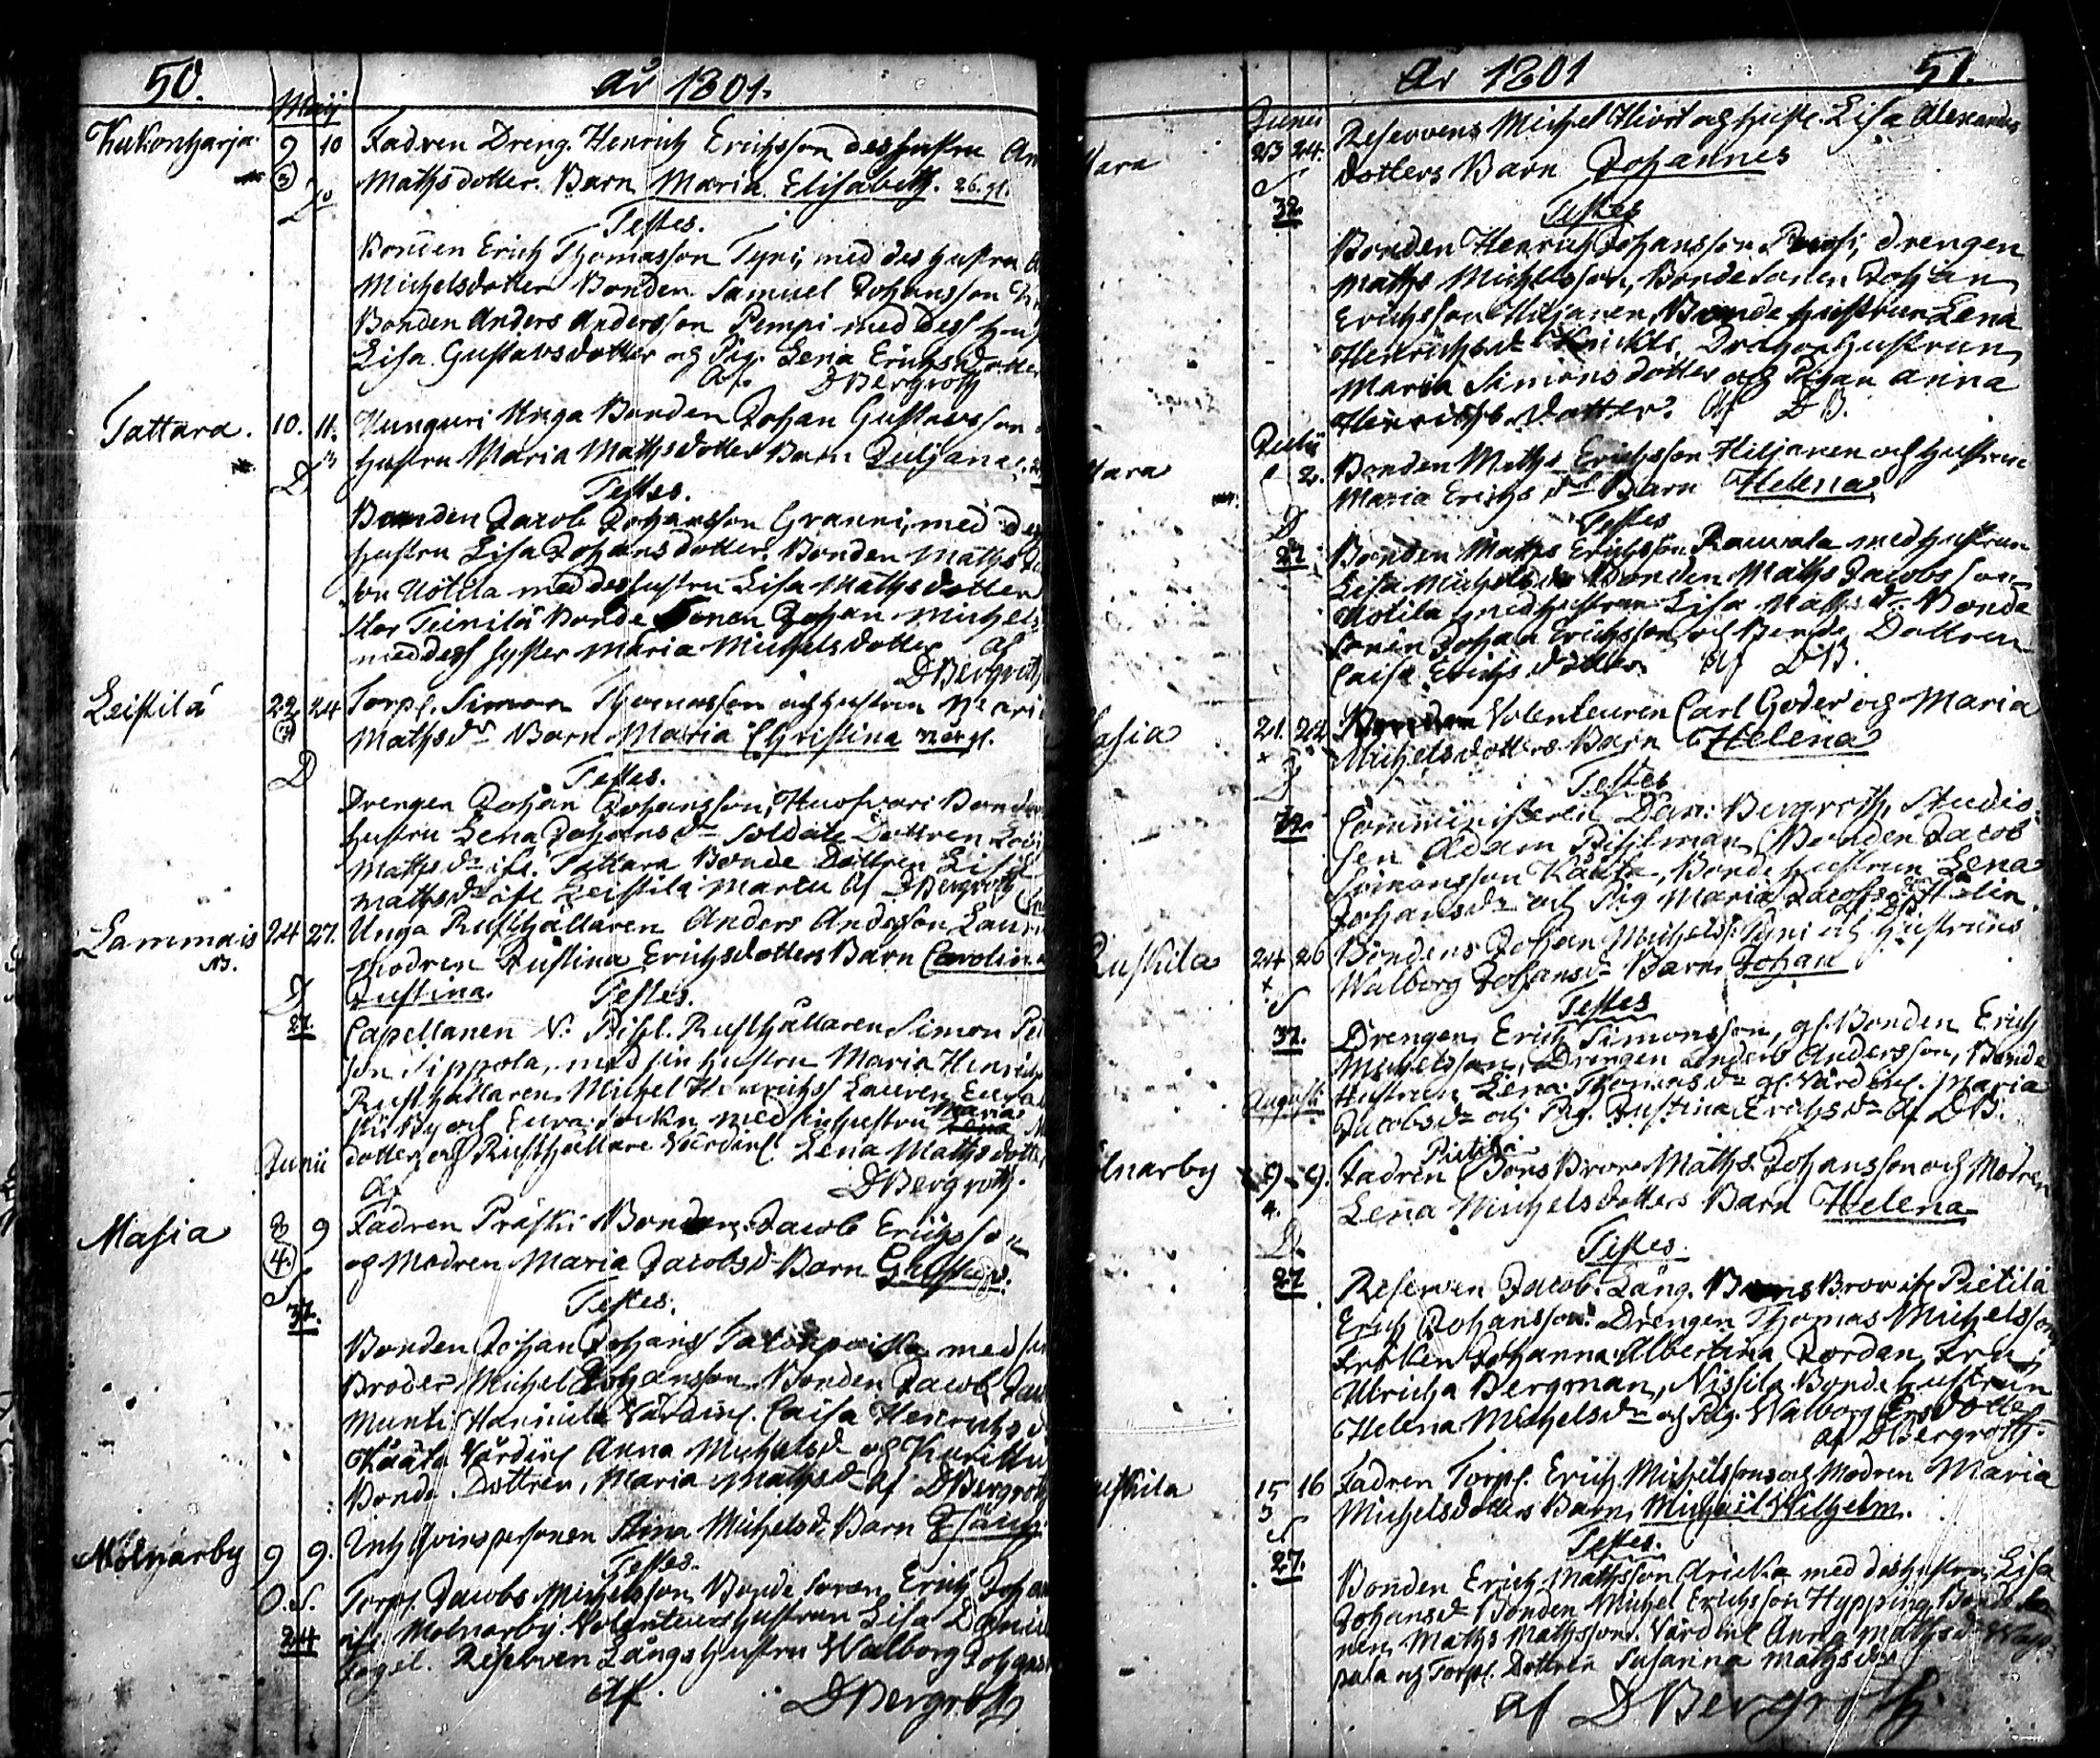 50. År 1801.
Maij
Kukonharja. 9 10 Fadren Dreng. Henrich Erichsson des hustru An
(3) Mathsdotter. Barn Maria Elisabeth. 26. gl.
D
Testes.
Bonden Erich Thomasson Tyni, med des hustru
Michelsdotter Bonden Samuel Johansson
Bonden Anders Andersson Pempi med dess hu
Lisa Gustavsdotter och Pig. Lena Erichsdotter
Af. DBergroth
Tattara. 10. 11. Kunguri Unga Bonden Johan Gustavsson
hustru Maria Mathsdotter Barn Juljana.
D
Testes.
Bonden Jacob Johansson Granni, med des
hustru Lisa Johansdotter. Bonden Maths
son Uotila med des hustru Lisa Mathsdotter
Stor Tunila Bonde Sonen Johan Michels
med dess syster Maria Michelsdotter af
DBergroth
Leistilä 22 24 Torp. Simon Thomasson och hustrun Mari
(3) Mathsdr Barn Maria Christina
D
Testes.
Drengen Johan Johansson, Huofvari Bonde
hustru Lena Johansdr Soldate Dottren
Mathsdr ifr. Tattara Bonde Dottren Lisa
Mathsdr ifr Leistilä Martu af DBergroth
Lammais 24 27. Unga Rusthållaren Anders Andersson Lauri
NB. Modren Justina Erichsdotters Barn Carolina
D Justina. Testes.
27. Capellanen N. Pihl. Rusthållaren Simon
son Sippola, med sin hustru Maria Henrichs
Rusthållaren Michel Henrichss Lauren Eura
by och Eura socken med sin hustru Maria
dotter och Rusthållare Värdin Lena Mathsdotter
Af DBergroth.
Junii
Masia 8 9 Fadren Präski Bonden Jacob Erichsson
(4.) och Modren Maria Jacobsdr Barn Gustav.
S
37. Testes.
Bonden Johan Johanss Takonpoika med sin
Broder Michel Johansson Bonden Jacob
Munti Hannula Värdin. Caisa Henrichsd
Kääta Värdin Anna Michelsdr och Karittu
Bonde Dottren, Maria Mathsdr af DBergroth
Molnarby 9 9. Inh. qvinspersonen Stina Michelsdr Barn
Testes.
O.S. Torp. Jacobs Michelsson Bonde sonen Erich Johan
24 ifr Molnarby. Volenteurs hustrun Lisa Danie
Fogel. Reserven Långs hustru Walborg Johans
af. DBergroth
År 1801 51.
Junii
ttara 23 24. Reservens Michel Hiort och hustr. Lisa Alexanders
S dotters Barn Johannes
32 Testes
Bonden Henrich Johansson, drengen
Maths Michelsson, Bonde sonen Johan
Erichsson Hiljanen Bonde hustrun Lena
Henrichsdr, Dragon hustrun
Maria Simonsdotter och Pigan Anna
Henrichsdotter. Af DB.
Julii
ttara 1 2. Bonden Maths Erichsson Hiljanen och hustrun
Maria Erichsdr Barn Helena
D Testes
27. Bonden Maths Erichsson Rauvala med hustrun
Lisa Michelsdr Bonden Maths Jacobsson
Uotila med hustrun Lisa Mathsdr Bonde
sonen Johan Erichsson och Bonde Dottren
Caisa Erichsdotter. Af DB.
Masia 21. 22. Volenteuren Carl Goder och Maria
Michelsdotters Barn Helena
D Testes
32. Comministeren Dan. Bergroth, Studio
sen Adam Pihlman, Bonden Jacob
Simonsson Kääta, Bonde hustrun Lena
Johansdr och Pig Maria Jacobsdr
af DB.
Rustila 24 26 Bondens Johan Michelss Tyni och hustruns
Walborg Johansdr Barn Johan
S Testes
37. Drengen, Erich Simonsson, gl. Bonden Erich
Michelsson, Drengen Anders Andersson, Bonde
Hustrun Lena Thomasdr gl. Värdin. Maria
Jacobsdr och Pig. Justina Erichsdr Af DB.
Augusti
Pietilä
lnarby 9. 9. Fadren Bons Brors Maths Johansson och Modren
4. Lena Michelsdotters Barn Helena
D. Testes.
27 Reserven Jacob Lång. Bons Bror ifr Pietilä
Erich Johansson. Drengen Thomas Michelsson
Fröken Johanna Albertina Jordan, Fru
Ulricha Bergman, Nissila Bonde hustrun
Helena Michelsdr och Pig. Walborg Ersdotter
af DBergroth.
ustila 15 16 Fadren Torp. Erich Michelssons och Modren Maria
3 Michelsdotters Barn Michaël Wilhelm.
S Testes.
27. Bonden Erich Mathsson Uricka med des hustru Lisa
Johansdr Bonden Michel Erichsson Hypping, Bonde so
nen, Maths Mathsson. Värdin Anna Mathsdr
pala och Torp. Dottren Susanna Mathsdr
af DBergroth.